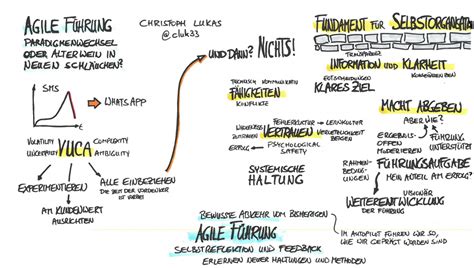 AGILE FÜHRUNG
PARADIGMENWECHSEL
ODER ALTER WEIN IN
NEUEN SCHLÄUCHEN?
CHRISTOPH LUKAS
@cluk33
SMS
WHATSAPP
VOLATILITY
COMPLEXITY
UNCERTAINTY
VUCA
AMBIGUITY
EXPERIMENTIEREN
AM KUNDENWERT
AUSRICHTEN
ALLE EINBEZIEHEN
DIE ZEIT DER VORDENKER
IST VORBEI
UND DANN? NICHTS!
TECHNISCH KOMMUNIKATIV
FÄHIGKEITEN
KONFLIKTE
FEHLERKULTUR LERNKULTUR
ZUSTÄNDE
VERTRAUEN
VERLETZLICHKEIT
ZEIGEN
ERFOLG
PSYCHOLOGICAL
SAFETY
SYSTEMISCHE
HALTUNG
FUNDAMENT FÜR SELBSTORGANISATION
INFORMATION UND KLARHEIT
ENTSCHEIDUNGEN
KLARES ZIEL
MACHT ABGEBEN
ABER WIE?
ERGEBNIS-
OFFEN
MODERIEREN
FÜHRUNG
UNTERSTÜTZT
RAHMEN-
BEDINGUNGEN
FÜHRUNGSAUFGABE
MEIN ANTEIL AM ERFOLG?
WEITERENTWICKLUNG
DER FÜHRUNG
BEWUSSTE ABKEHR VOM BISHERIGEN
AGILE FÜHRUNG
IM AUTOPILOT FÜHREN WIR SO,
WIE WIR GEPRÄGT WORDEN SIND
SELBSTREFLEKTION UND FEEDBACK
ERLERNEN NEUER HALTUNGEN UND METHODEN